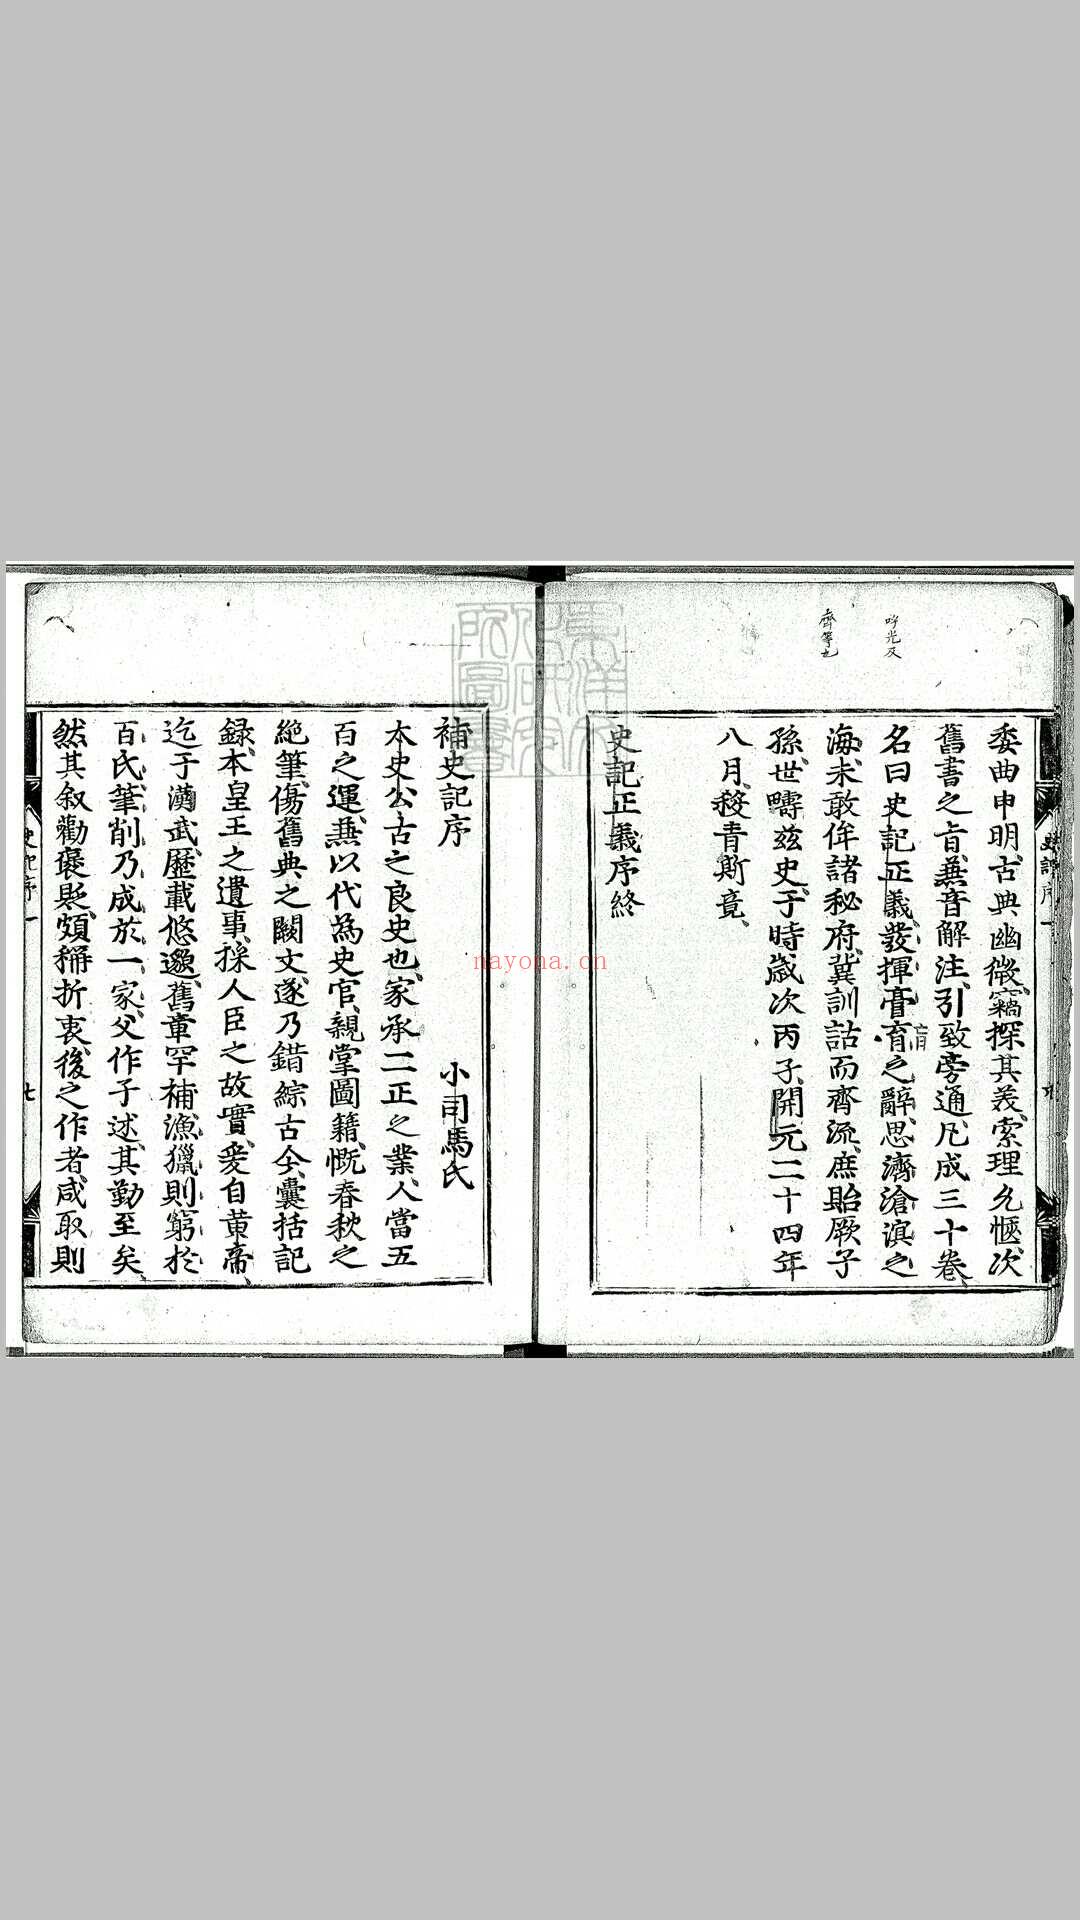 委曲申明古典幽微竊探其美索理允愜次
舊書之旨兼音解注引致旁通凡成三十卷
名曰史記正義發揮膏肓之辭思濟滄溟之
海未敢侔諸秘府冀訓詁而齊流庶貽厥子
孫世疇玆史于時歲次丙子開元二十四年
八月殺青斯竟
史記正義序終
齊等也
補史記序
小司馬氏
太史公古之良史也家承二正之業人當五
百之運兼以代為史官親掌圖籍慨春秋之
絶筆傷舊典之闕文遂乃錯綜古今囊括記
録本皇王之遺事採人臣之故實爰自黄帝
迄于漢武歷載悠邈舊章罕補漁獵則窮於
百氏筆削乃成於一家父作子述其勤至矣
然其叙勸褒貶頗稱折衷後之作者咸取則
史記序一
七
nayona.cn